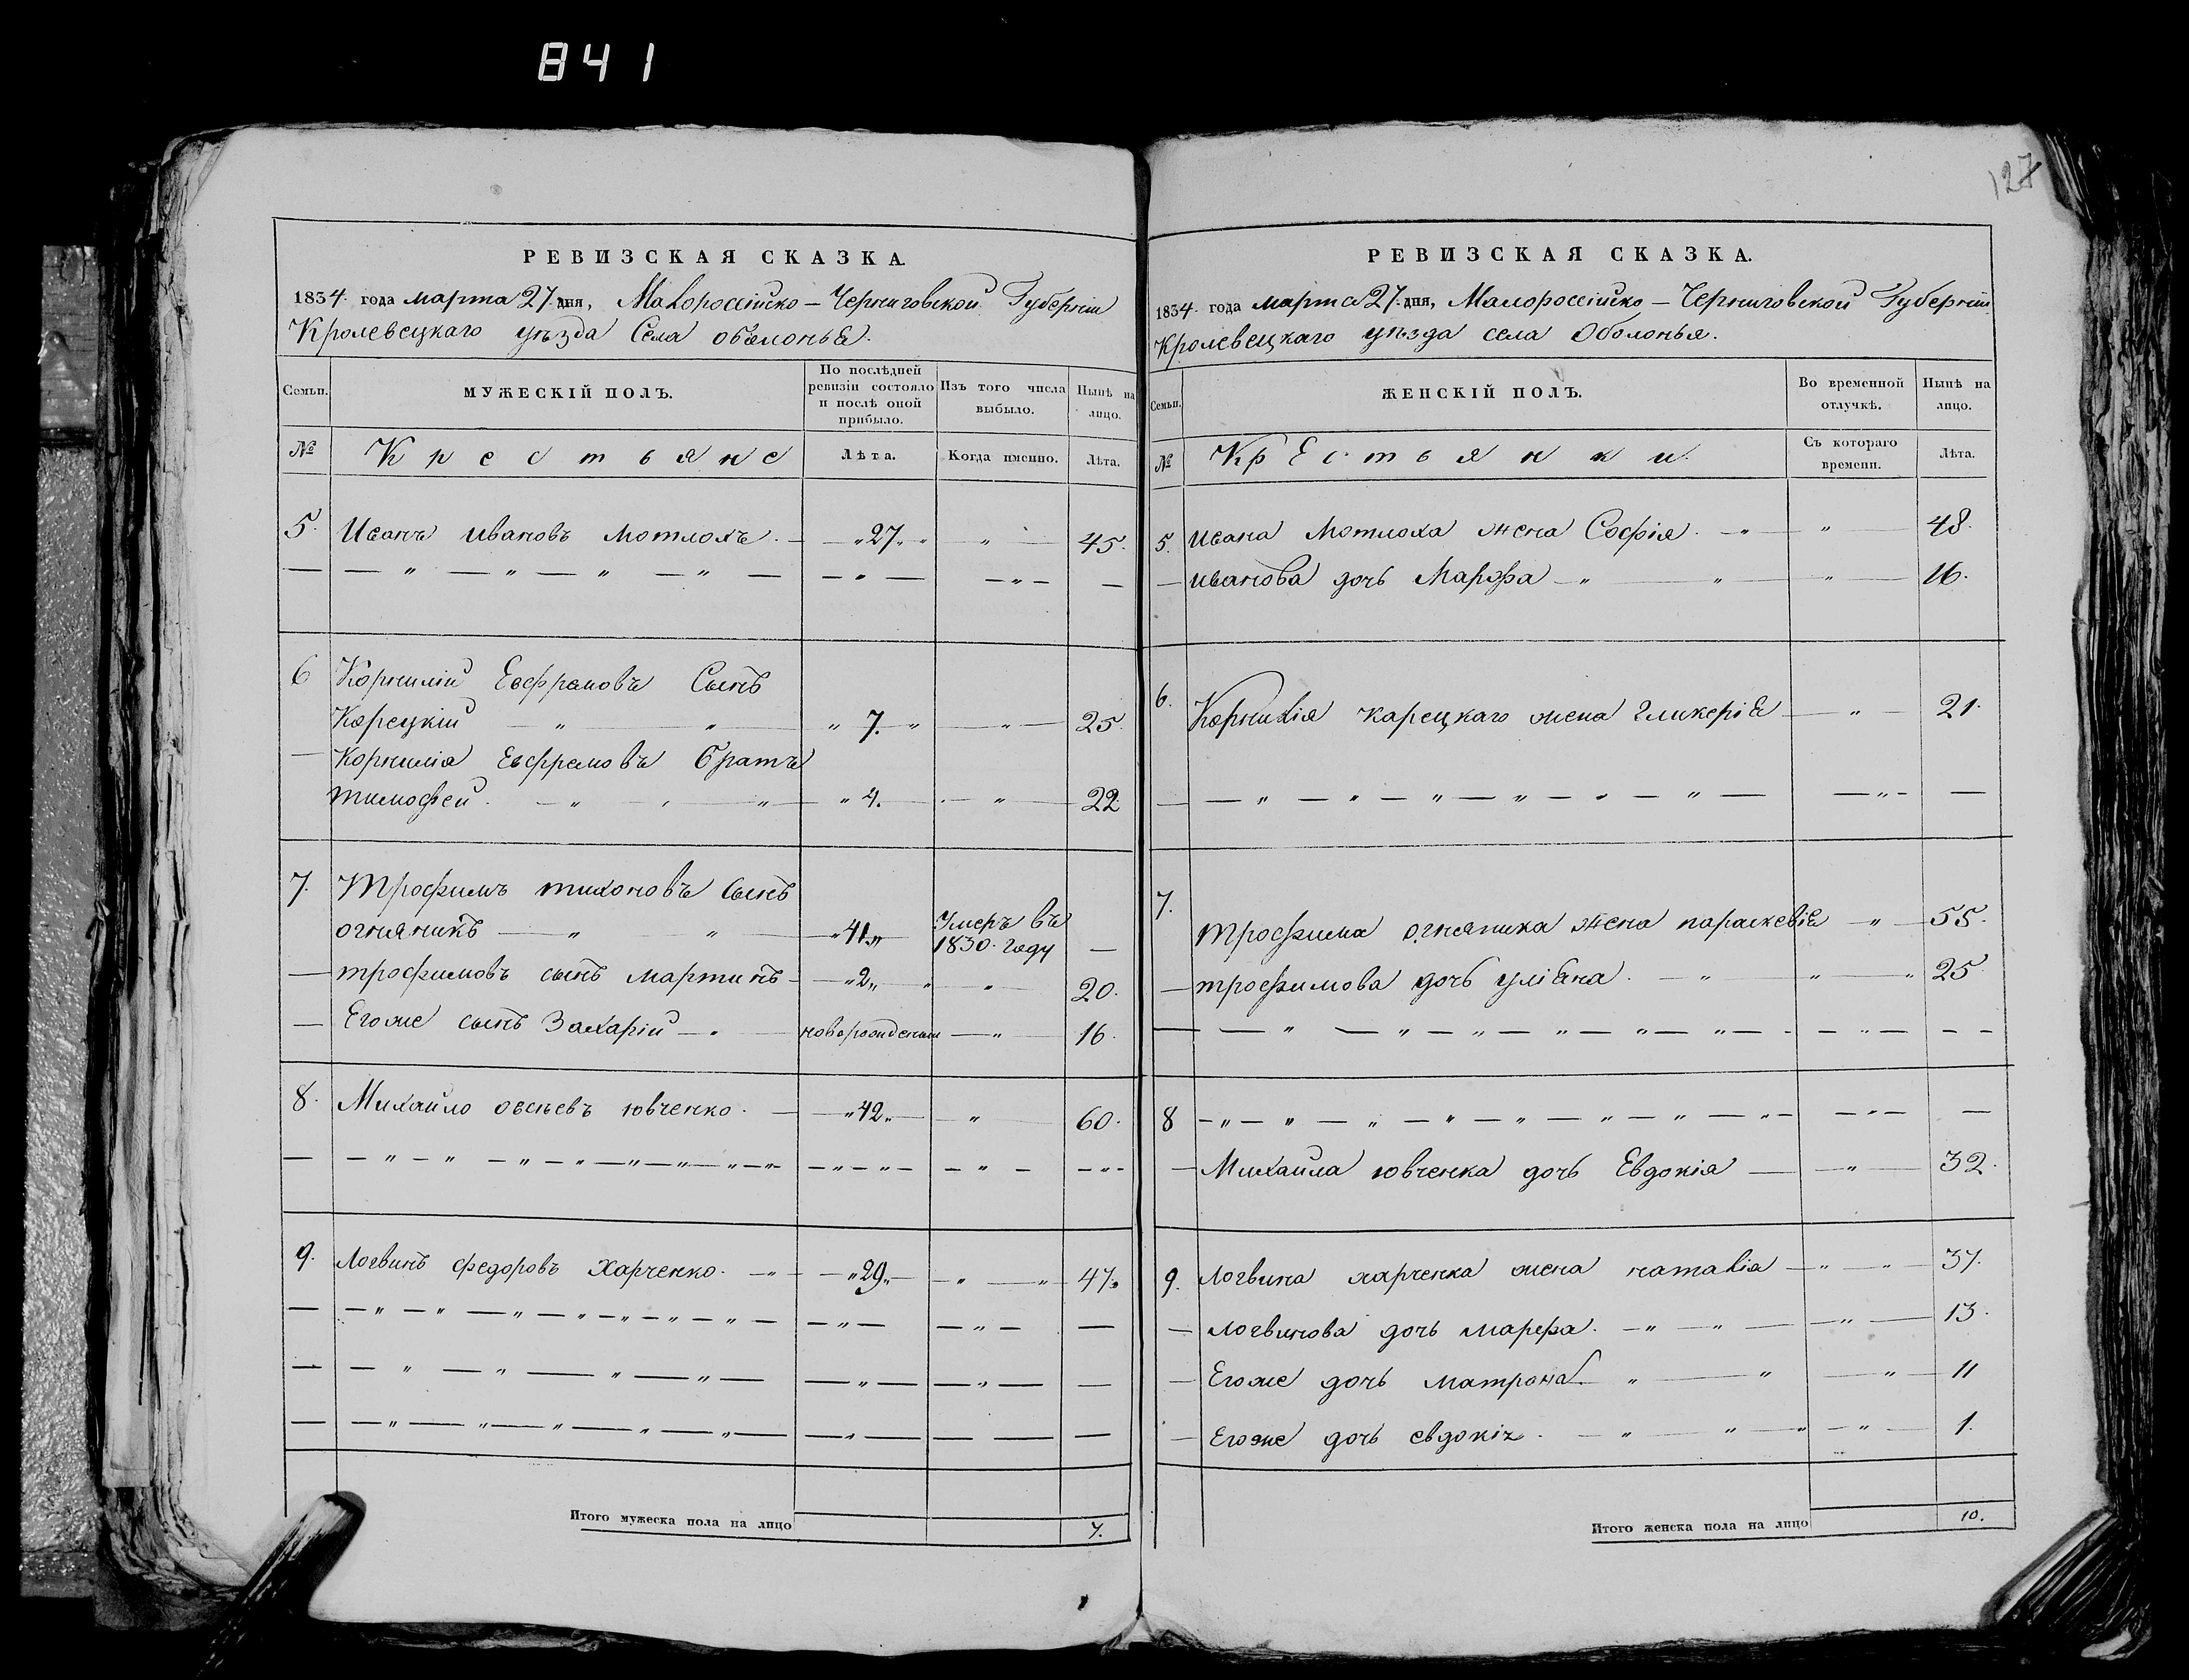 841
127
РЕВИЗСКАЯ СКАЗКА.
1834. года марта 27. дня, Малороссійско - Черниговской Губерніи
Кролевецкаго уѣзда Села оболонья.
Семьи.
МУЖЕСКІЙ ПОЛЪ.
По послѣдней ревизіи состояло и послѣ оной прибыло.
Изъ того числа выбыло.
Нынѣ на лицо.
№ Крестьяне Лѣта. Когда именно. Лѣта.
5. Иванъ ивановъ мотлохъ. — „27„ „ „ — 45.
6 Корнилій Евфремовъ Сынъ
Корецкій — „ — „ „ 7. „ — „ — 25.
— Корнилія Евфремовъ братъ
тимофей. — „ — „ — „ 4. — „ — 22
7. Трофимъ тихоновъ сынъ
огняникъ — „ — „ — „41„ Умеръ въ 1830. году —
— трофимовъ сынъ мартинъ — „2„ „ „ — 20.
— Егоже сынъ Захарій — „ — новорожденный — „ — 16.
8. Михайло овсѣевъ ювченко. — „42„ — „ — 60.
9. Логвинъ федоровъ харченко. — „ — „29„ — „ — „ 47„
Итого мужеска пола на лицо 7.
РЕВИЗСКАЯ СКАЗКА.
1834. года марта 27. дня, Малороссійско - Черниговской Губерніи
Кролевецкаго уѣзда села Оболонья.
Семьи.
ЖЕНСКІЙ ПОЛЪ.
Во временной отлучкѣ.
Нынѣ на лицо.
№ Крестьянки. Съ котораго времени. Лѣта.
5. Ивана Мотлоха жена Софія. — „ — „ — 48.
— иванова дочь Марфа — „ — „ — „ — 16.
6. Корнилія карецкаго жена гликерія — „ — 21.
7. трофима огняника жена параскевія — „ — 55.
— трофимова дочь уліана. — „ — „ — „ 25.
8
— Михайла ювченка дочь Евдокія — „ — 32.
9. Логвина харченка жена наталія — „ — „ — 37.
— логвинова дочь марфа. — „ — „ — „ — 13.
— Егоже дочь матрона. „ — „ — „ — 11
— Егоже дочь евдокія. — „ — „ — „ — „ — 1.
Итого женска пола на лицо 10.